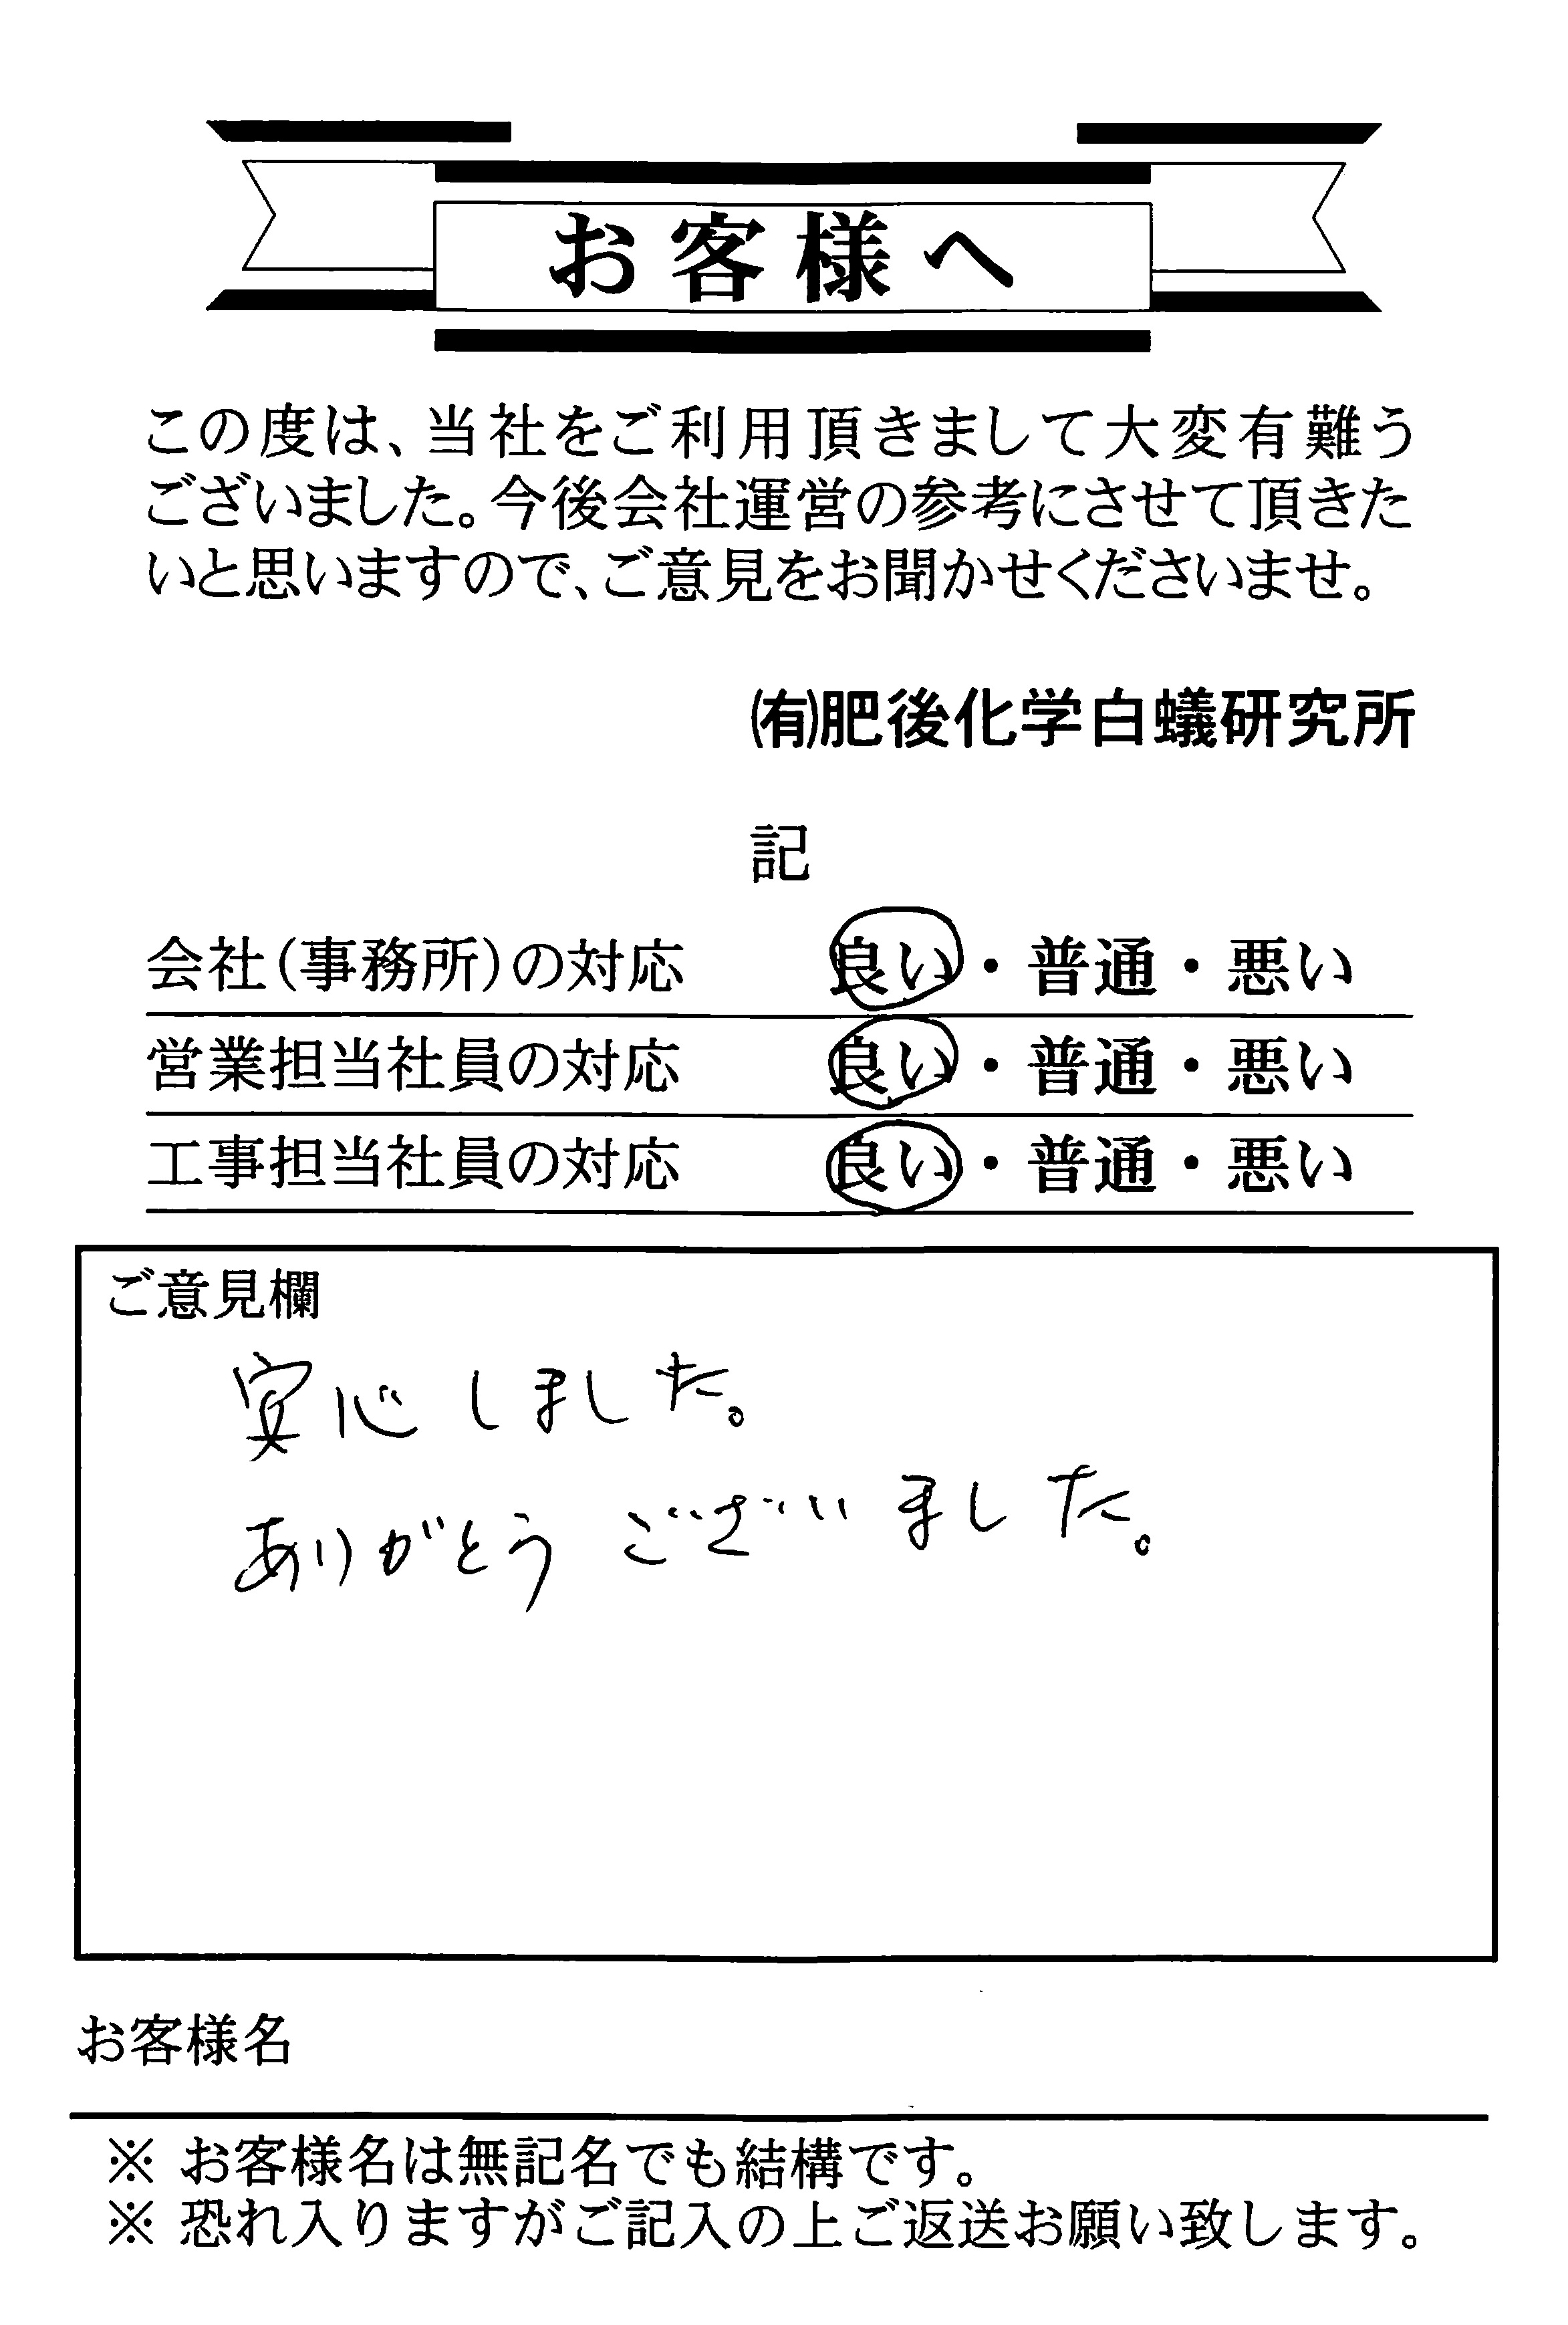 お客様へ
この度は、当社をご利用頂きまして大変有難う
ございました。今後会社運営の参考にさせて頂きた
いと思いますので、ご意見をお聞かせくださいませ。
㈲肥後化学白蟻研究所
記
会社(事務所)の対応 良い・普通・悪い
営業担当社員の対応 良い・普通・悪い
工事担当社員の対応 良い・普通・悪い
ご意見欄
安心しました。
ありがとうございました。
お客様名
※ お客様名は無記名でも結構です。
※ 恐れ入りますがご記入の上ご返送お願い致します。